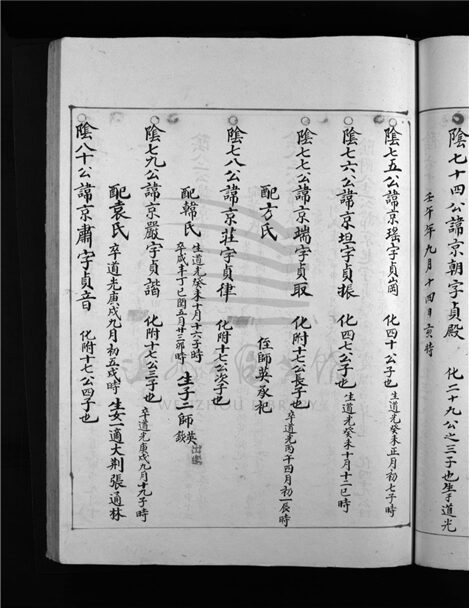 陰七十四公諱京朝字貞殿 化二十九公之三子也生于道光
壬午年九月十四日亥時
陰七五公諱京瑤字貞崗 化四十公子也 生道光癸未正月初七子時
陰七六公諱京坦字貞振 化四七公子也 生道光癸未十月十二巳時
陰七七公諱京瑞字貞取 化附十七公長子也 卒道光丙午四月初一辰時
配方氏 侄師英承祀
陰七八公諱京莊字貞律 化附十七公次子也
配韓氏 生道光癸未十月十六子時 卒咸丰丁巳閏五月廿三卯時 生子二師英 欽
陰七九公諱京嚴字貞諧 化附十七公三子也 卒道光庚戌九月十九子時
配袁氏 卒道光庚戌九月初五戌時 生女一適大荆張通林
陰八十公諱京肅字貞音 化附十七公四子也